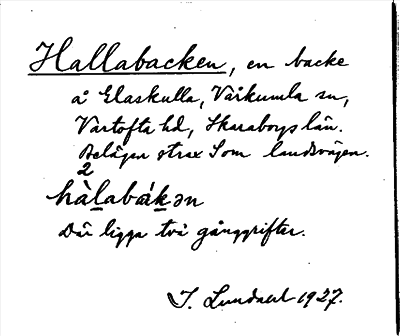 Hallabacken, en backe
å Elaskulla, Vårkumla sn,
Vartofta hd, Skaraborgs län.
Belägen strax S om landsvägen.
2
hàlabák̲ən
Där ligga två gånggrifter.
J. Lundahl 1927.